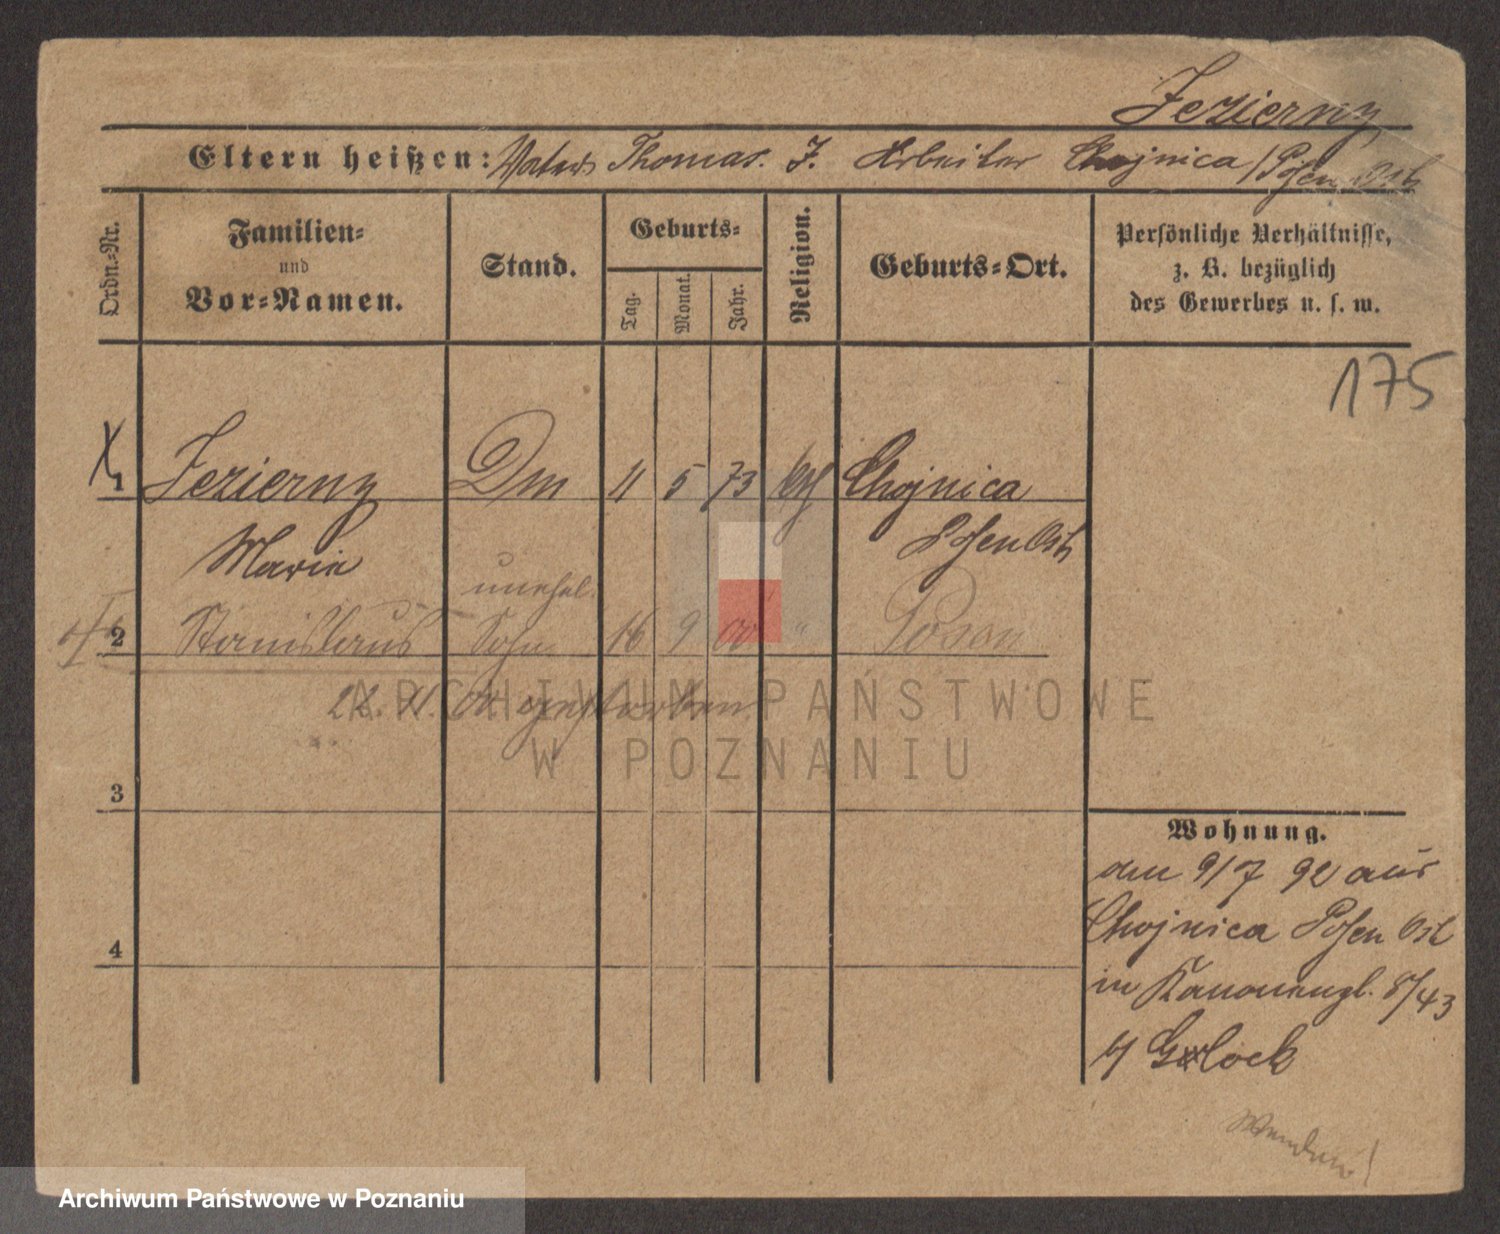 Jezierny
Eltern heißen: Vater Thomas J. Arbeiter Chojnica / Posen Ost
Ordn.-Nr.
Familien-
und
Vor-Namen.
Stand.
Geburts-
Tag.
Monat.
Jahr.
Religion.
Geburts-Ort.
Persönliche Verhältnisse,
z. B. bezüglich
des Gewerbes u. s. w.
175
1 Jezierny Dm 11 5 73 kth Chojnica
Marie Posen Ost
unehel.
2 Stanislaus Sohn 16 9 00 " Posen
11. 00 gestorben
ARCHIWUM PAŃSTWOWE
W POZNANIU
3
4
Wohnung.
den 9/7 92 aus
Chojnica Posen Ost
in Kanonengl. 8/43
b/ Glock
Wenden!
Archiwum Państwowe w Poznaniu